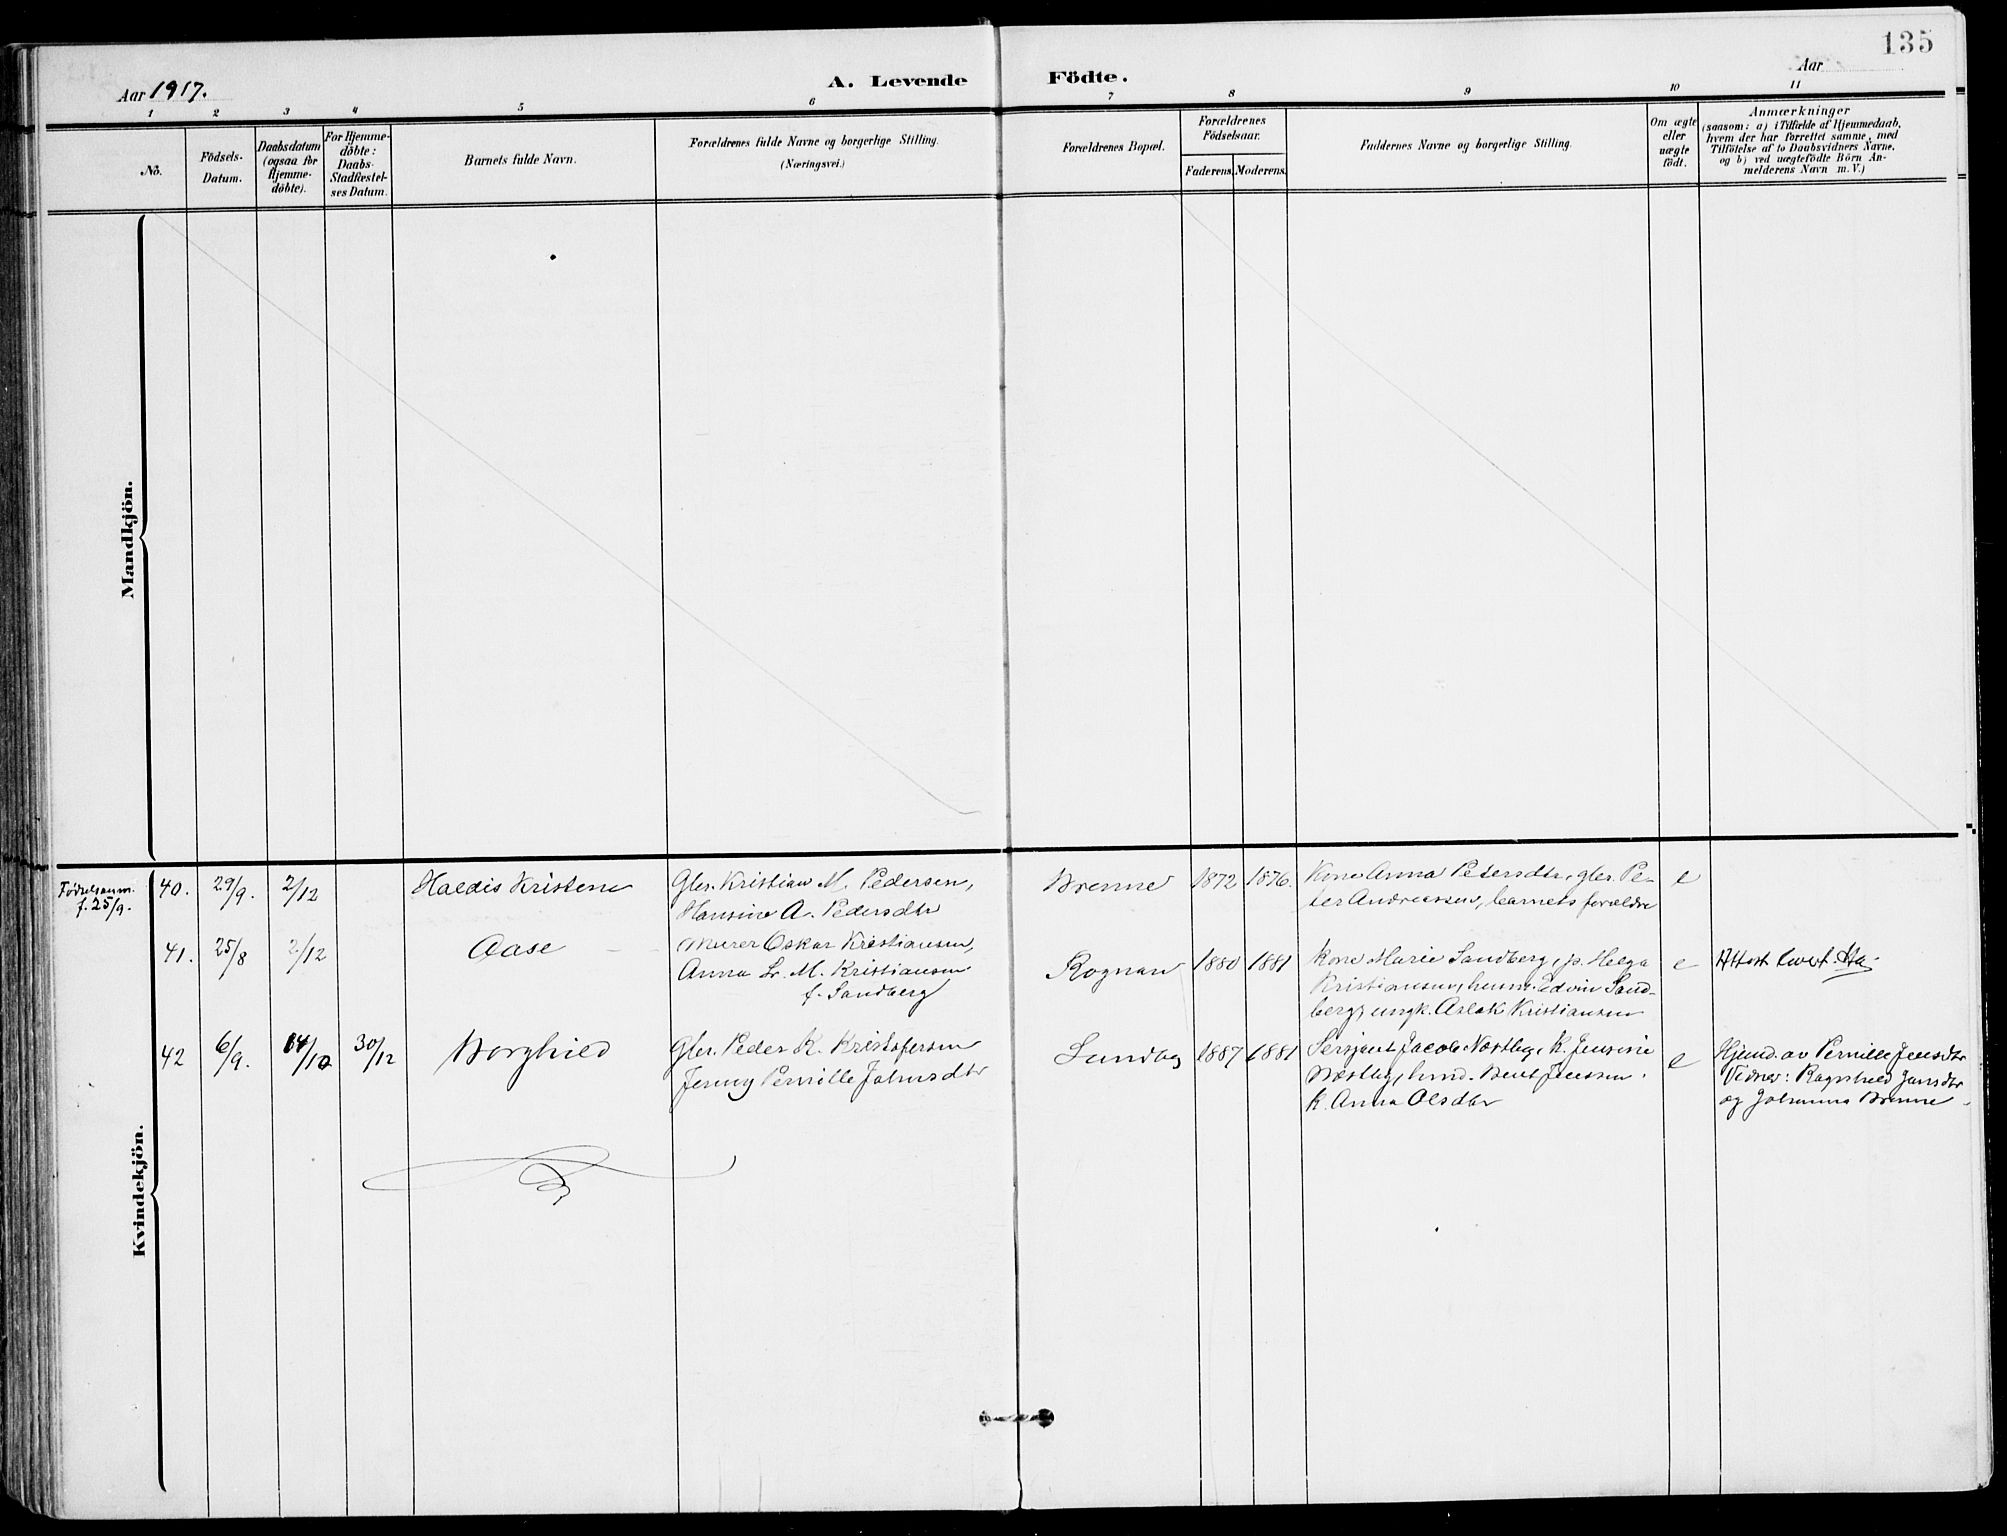 135
Aar 1917.
A. Levende Födte.
Aar
1 2 3 4 5 6 7 8 9 10 11
No.
Födsels-Datum.
Daabsdatum (ogsaa for Hjemme-döbte).
For Hjemme-döbte: Daabs-Stadfæstel-ses Datum.
Barnets fulde Navn.
Forældrenes fulde Navne og borgerlige Stilling.
(Næringsvei.)
Forældrenes Bopæl.
Forældrenes Födselsaar.
Faderens. Moderens.
Faddernes Navne og borgerlige Stilling.
Om ægte eller uægte födt.
Anmærkninger
(saasom: a) i Tilfælde af Hjemmedaab,
hvem der har forrettet samme, med
Tilföielse af to Daabsvidners Navne,
og b) ved uægtefödte Börn An-
melderens Navn m. V.)
Mandkjön.
Kvindekjön.
Fødselsanm.
f. 25/9.
40. 29/9. 2/12 Haldis Kristene
Gbr. Kristian M. Pedersen,
Hansine A. Pedersdtr
Brenne 1872 1876.
Kone Anna Petersdtr, gbr. Pe-
ter Andreassen, barnets forældre
e
41. 25/8 2/12 Aase
Murer Oskar Kristiansen,
Anna L. M. Kristiansen
f. Sandberg
Rognan 1880 1881
Kone Marie Sandberg, p. Helga
Kristiansen, husm. Edvin Sand-
berg, ungk. Aslak Kristiansen
e
Attest
42 6/9. 14/10 30/12 Borghild
Gbr. Peder K. Kristofersen
Jenny Pernille Johnsdtr
Sundby 1887 1881
Sersjant Jacob Næstby, k. Jensine
Næstby, hmd. Bent Jenssen.
k. Anna Olsdtr
e
Hjemd. av Pernille Jensdtr
Vidner: Ragnhild Jansdtr
og Johanna Brenne